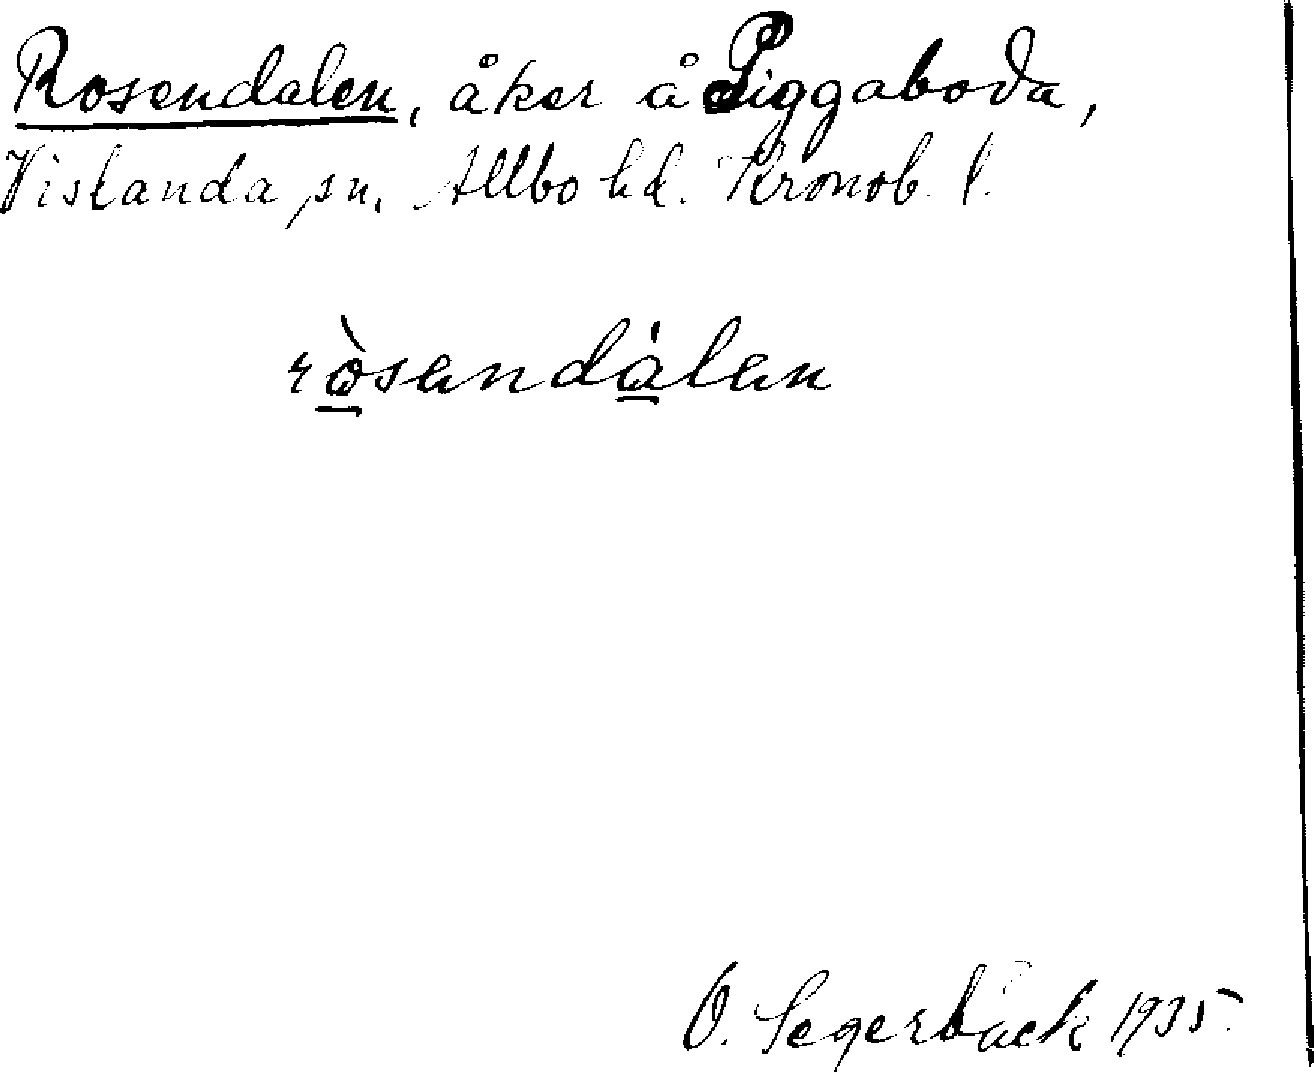 Rosendalen, åker å Piggaboda,
Vislanda sn. Allbo hd. Kronob. l.
ròsendálen
O. Segerbäck 1935.